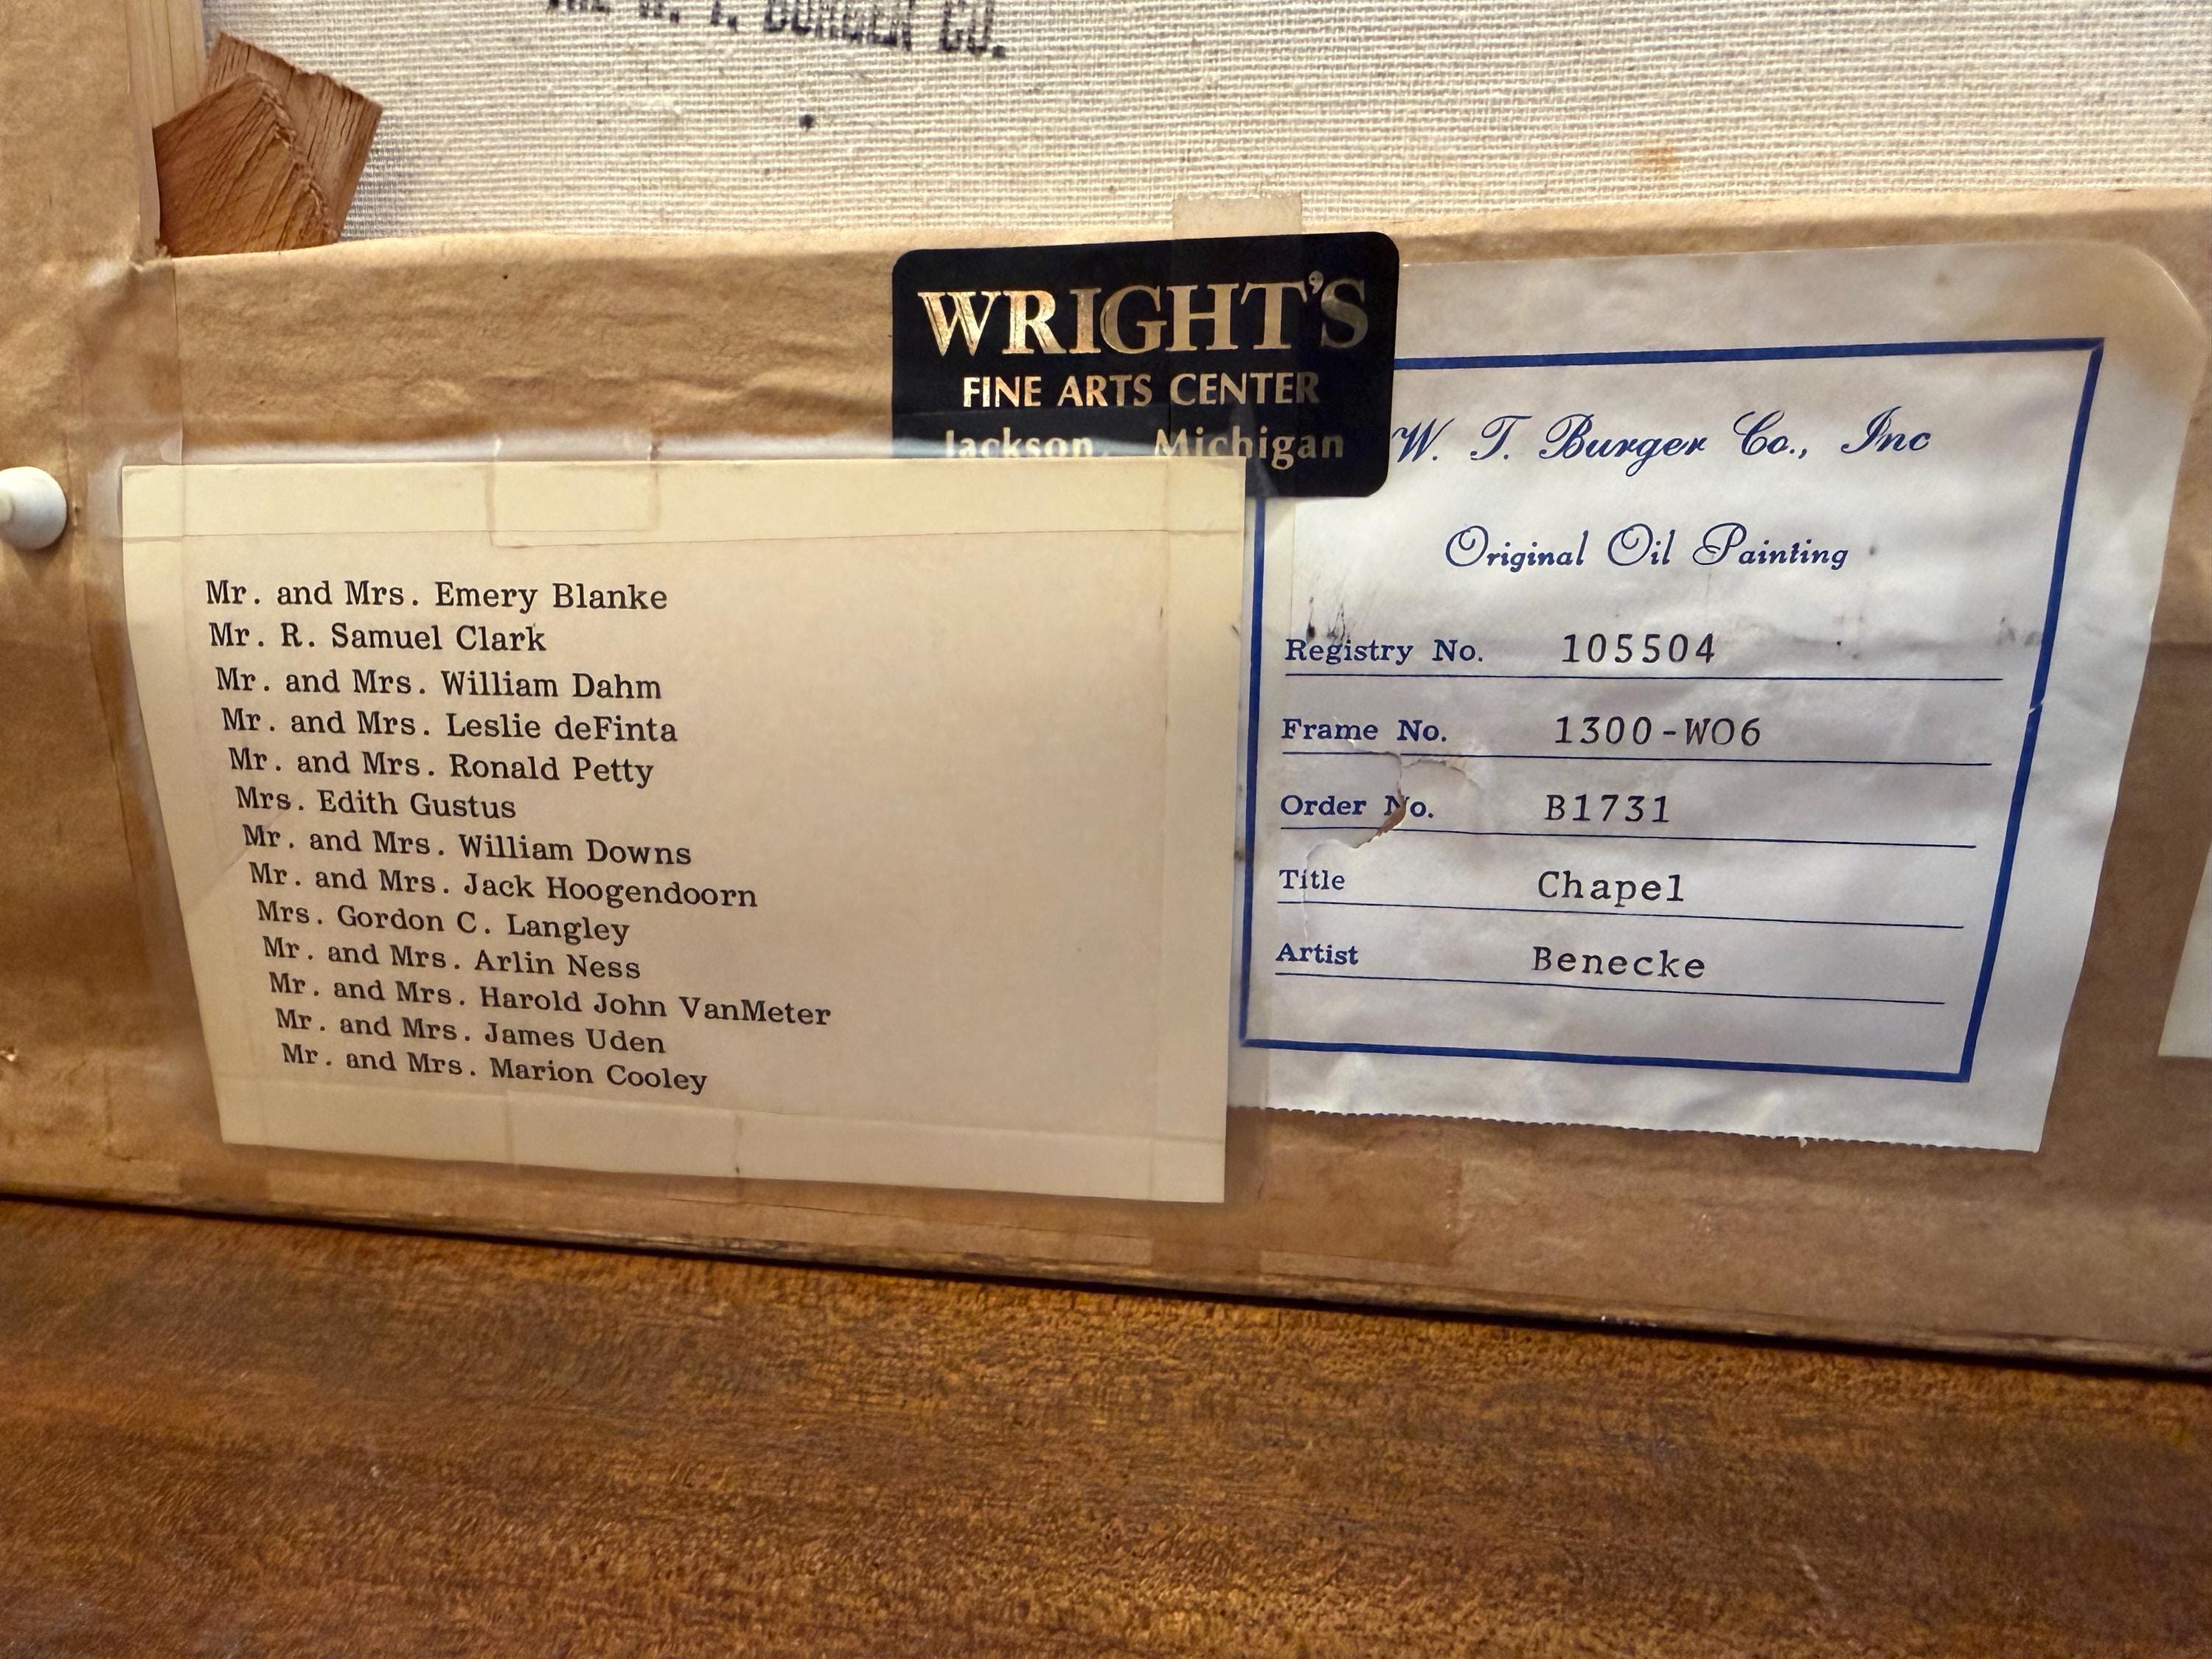 THE W. T. BURGER CO.
WRIGHT'S
FINE ARTS CENTER
Jackson, Michigan
Mr. and Mrs. Emery Blanke
Mr. R. Samuel Clark
Mr. and Mrs. William Dahm
Mr. and Mrs. Leslie deFinta
Mr. and Mrs. Ronald Petty
Mrs. Edith Gustus
Mr. and Mrs. William Downs
Mr. and Mrs. Jack Hoogendoorn
Mrs. Gordon C. Langley
Mr. and Mrs. Arlin Ness
Mr. and Mrs. Harold John VanMeter
Mr. and Mrs. James Uden
Mr. and Mrs. Marion Cooley
W. T. Burger Co., Inc
Original Oil Painting
Registry No. 105504
Frame No. 1300-WO6
Order No. B1731
Title Chapel
Artist Benecke